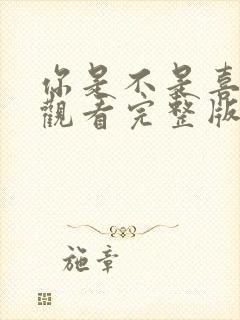 你是不是喜
觀看完整版
施章